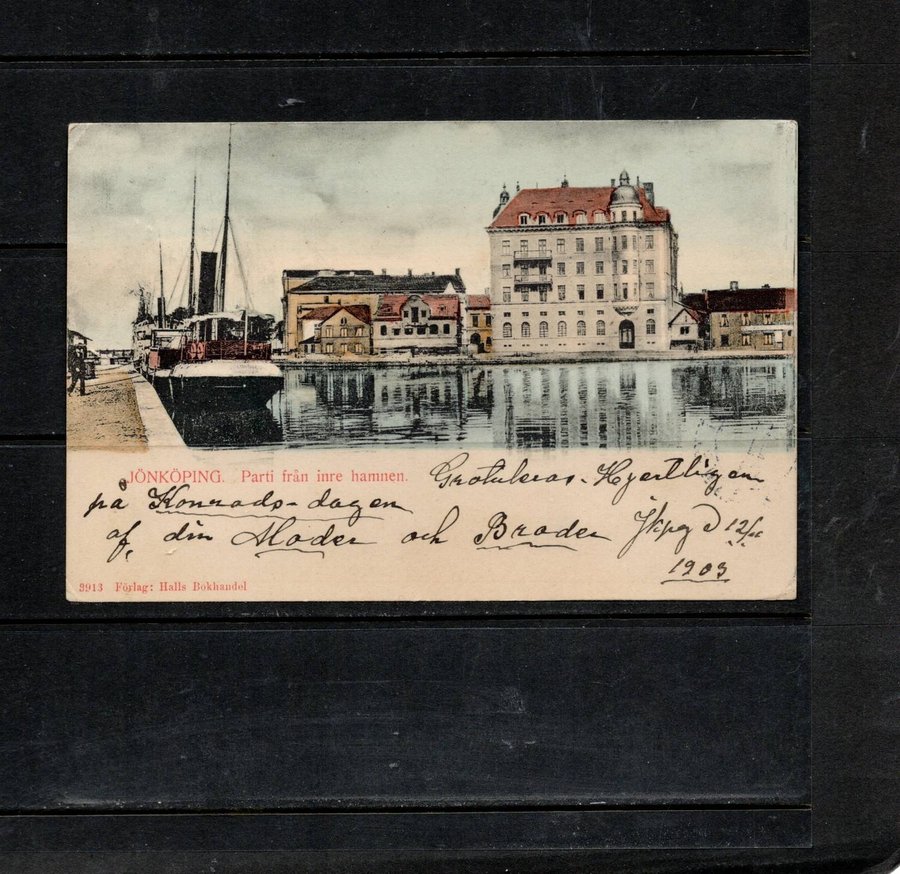 JÖNKÖPING. Parti från inre hamnen.
Gratuleras. Hjertligen
på Konrads-dagen
af din Moder och Broder Jkpg d 12/
1903
3913 Förlag: Halls Bokhandel